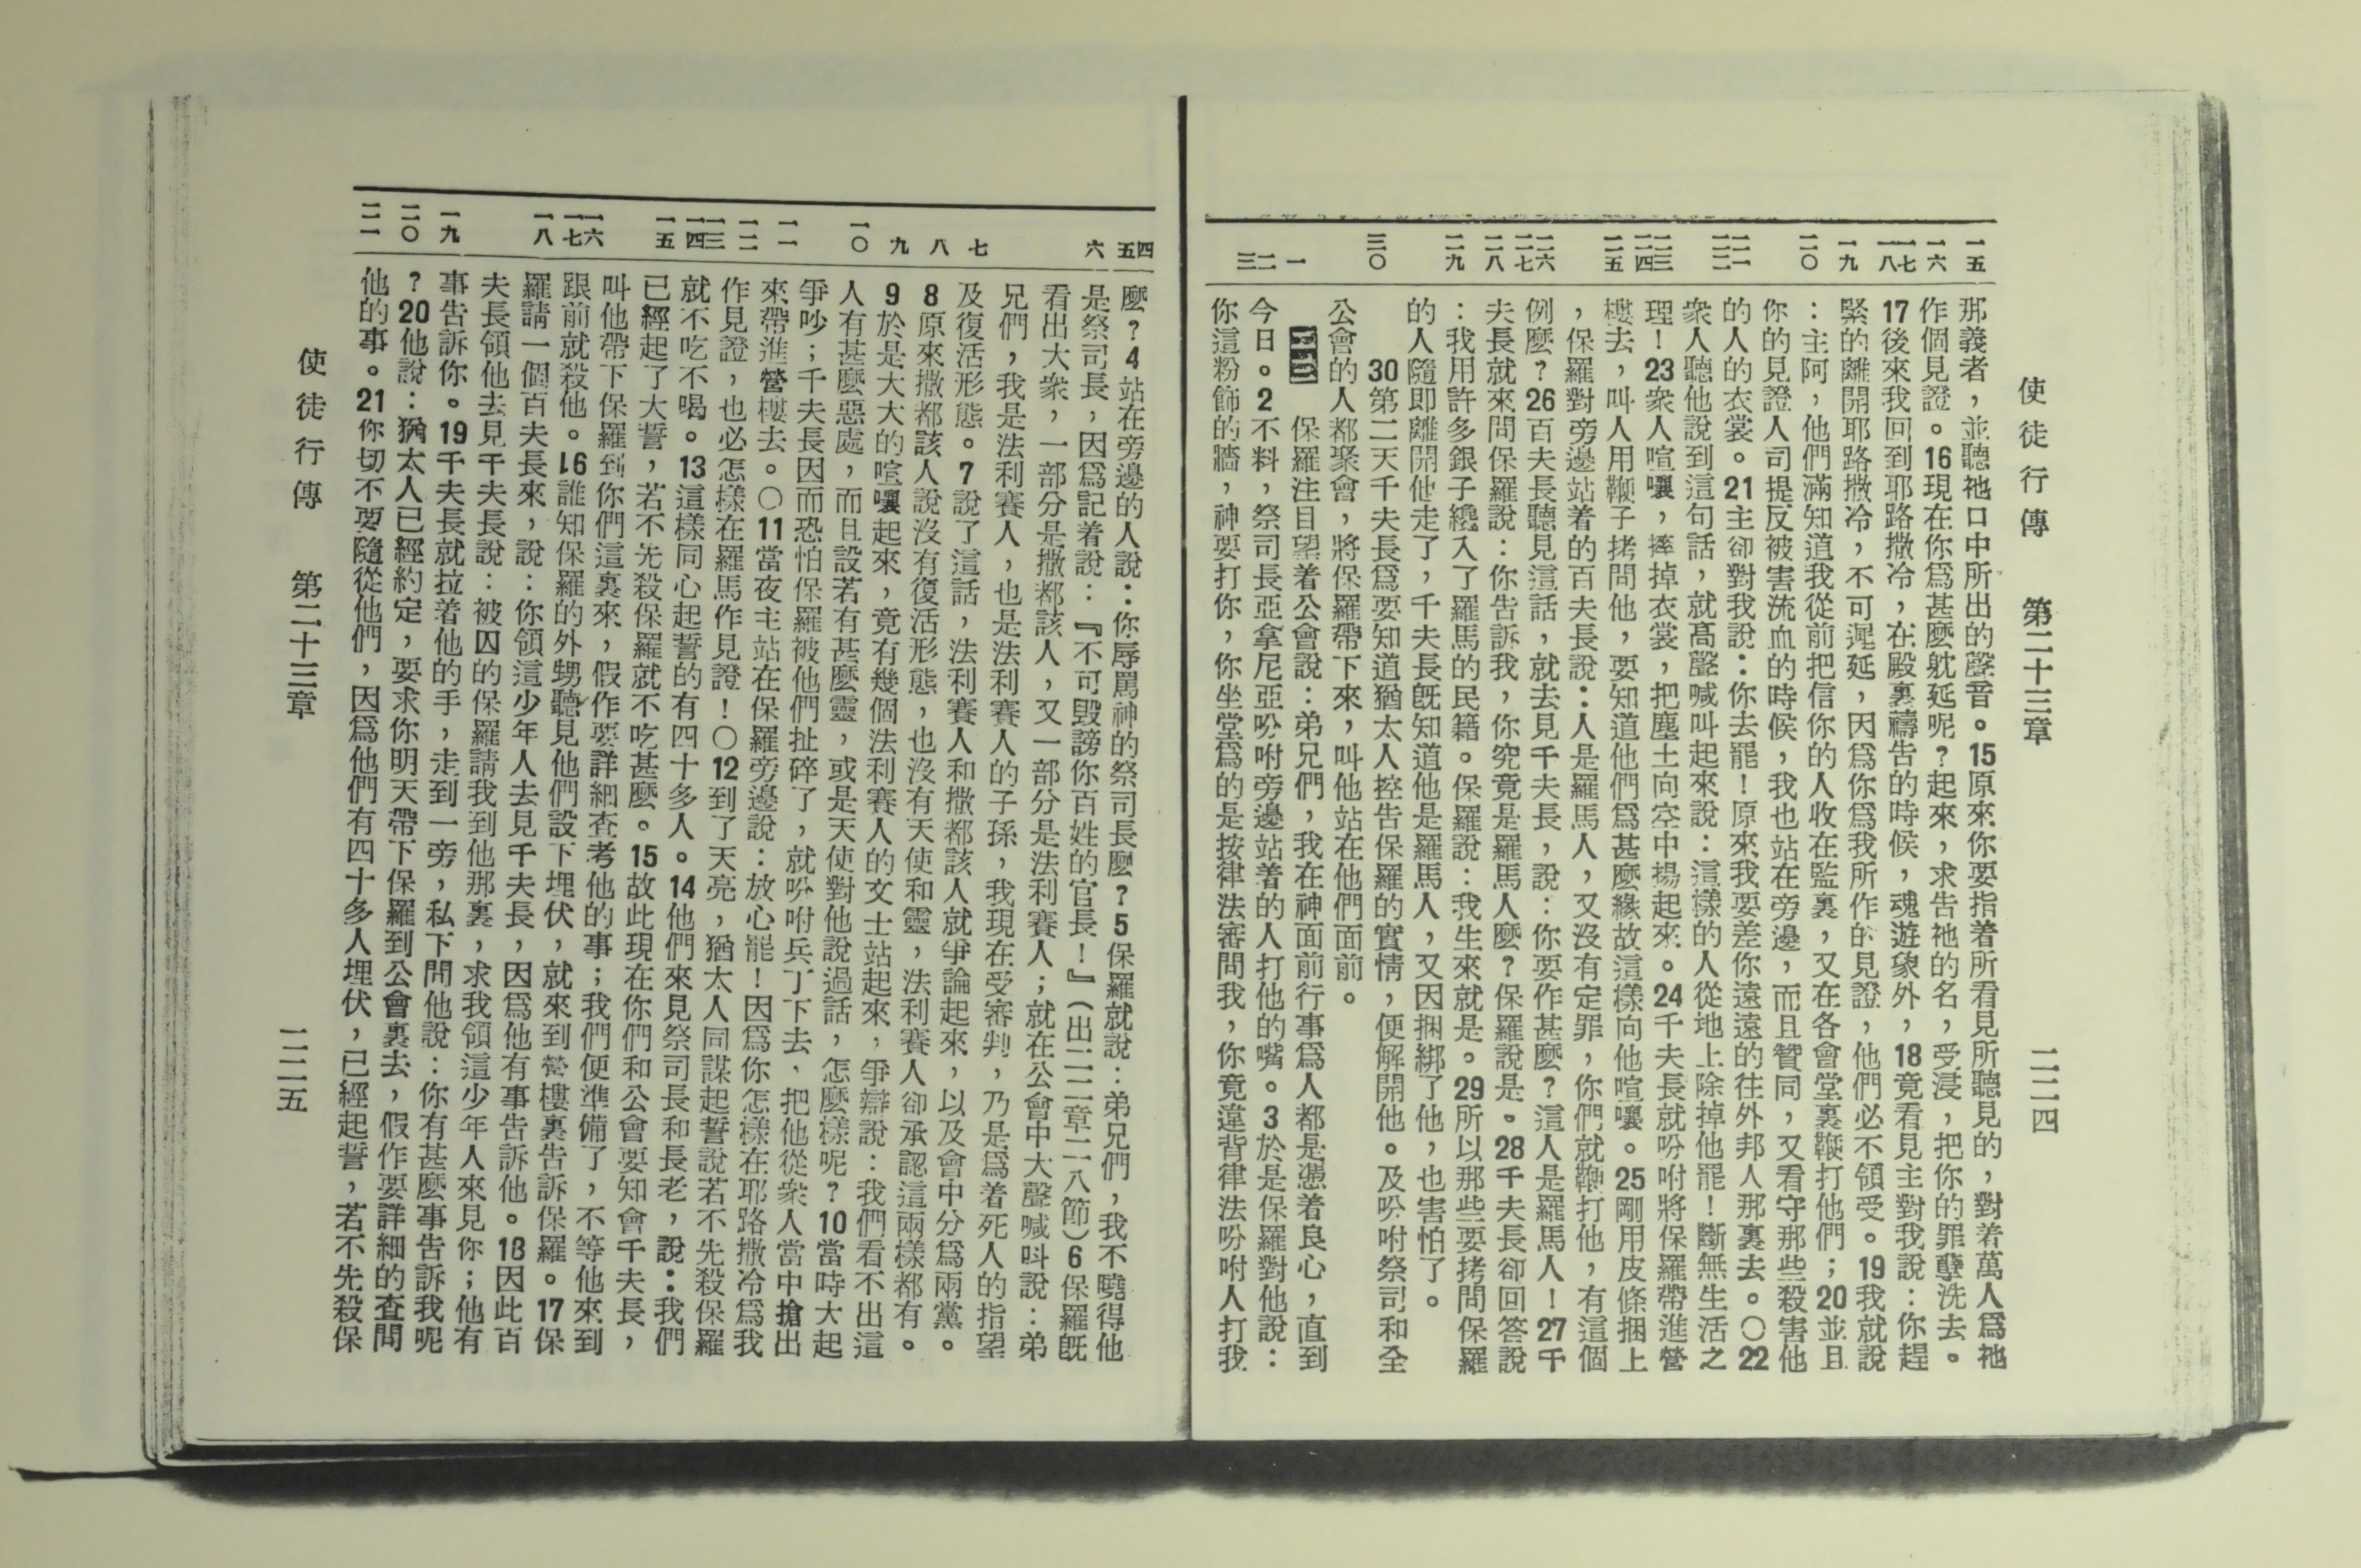 使徒行傳 第二十三章 二二四
一五 一六 一七 一八 一九 二〇 二一 二二 二三 二四 二五 二六 二七 二八 二九 三〇 一 二 三
那義者，並聽祂口中所出的聲音。15原來你要指着所看見所聽見的，對着萬人爲祂
作個見證。16現在你爲甚麼躭延呢？起來，求告祂的名，受浸，把你的罪孽洗去。
17後來我回到耶路撒冷，在殿裏禱告的時候，魂遊象外，18竟看見主對我說：你趕
緊的離開耶路撒冷，不可遲延，因爲你爲我所作的見證，他們必不領受。19我就說
：主阿，他們滿知道我從前把信你的人收在監裏，又在各會堂裏鞭打他們；20並且
你的見證人司提反被害流血的時候，我也站在旁邊，而且贊同，又看守那些殺害他
的人的衣裳。21主卻對我說：你去罷！原來我要差你遠遠的往外邦人那裏去。〇22
衆人聽他說到這句話，就高聲喊叫起來說：這樣的人從地上除掉他罷！斷無生活之
理！23衆人喧嚷，摔掉衣裳，把塵土向空中揚起來。24千夫長就吩咐將保羅帶進營
樓去，叫人用鞭子拷問他，要知道他們爲甚麼緣故這樣向他喧嚷。25剛用皮條捆上
，保羅對旁邊站着的百夫長說：人是羅馬人，又沒有定罪，你們就鞭打他，有這個
例麼？26百夫長聽見這話，就去見千夫長，說：你要作甚麼？這人是羅馬人！27千
夫長就來問保羅說：你告訴我，你究竟是羅馬人麼？保羅說是。28千夫長卻回答說
：我用許多銀子纔入了羅馬的民籍。保羅說：我生來就是。29所以那些要拷問保羅
的人隨即離開他走了，千夫長旣知道他是羅馬人，又因捆綁了他，也害怕了。
30第二天千夫長爲要知道猶太人控告保羅的實情，便解開他。及吩咐祭司和全
公會的人都聚會，將保羅帶下來，叫他站在他們面前。
保羅注目望着公會說：弟兄們，我在神面前行事爲人都是憑着良心，直到
今日。2不料，祭司長亞拿尼亞吩咐旁邊站着的人打他的嘴。3於是保羅對他說：
你這粉飾的牆，神要打你，你坐堂爲的是按律法審問我，你竟違背律法吩咐人打我
四 五 六 七 八 九 一〇 一一 一二 一三 一四 一五 一六 一七 一八 一九 二〇 二一
麼？4站在旁邊的人說：你辱罵神的祭司長麼？5保羅就說：弟兄們，我不曉得他
是祭司長，因爲記着說：『不可毀謗你百姓的官長！』（出二二章二八節）6保羅旣
看出大衆，一部分是撒都該人，又一部分是法利賽人；就在公會中大聲喊呌說：弟
兄們，我是法利賽人，也是法利賽人的子孫，我現在受審判，乃是爲着死人的指望
及復活形態。7說了這話，法利賽人和撒都該人就爭論起來，以及會中分爲兩黨。
8原來撒都該人說沒有復活形態，也沒有天使和靈，法利賽人卻承認這兩樣都有。
9於是大大的喧嚷起來，竟有幾個法利賽人的文士站起來，爭辯說：我們看不出這
人有甚麼惡處，而且設若有甚麼靈，或是天使對他說過話，怎麼樣呢？10當時大起
爭吵；千夫長因而恐怕保羅被他們扯碎了，就吩咐兵丁下去，把他從衆人當中搶出
來帶進營樓去。〇11當夜主站在保羅旁邊說：放心罷！因爲你怎樣在耶路撒冷爲我
作見證，也必怎樣在羅馬作見證！〇12到了天亮，猶太人同謀起誓說若不先殺保羅
就不吃不喝。13這樣同心起誓的有四十多人。14他們來見祭司長和長老，說：我們
已經起了大誓，若不先殺保羅就不吃甚麼。15故此現在你們和公會要知會千夫長，
叫他帶下保羅到你們這裏來，假作要詳細查考他的事；我們便準備了，不等他來到
跟前就殺他。16誰知保羅的外甥聽見他們設下埋伏，就來到營樓裏告訴保羅。17保
羅請一個百夫長來，說：你領這少年人去見千夫長，因爲他有事告訴他。18因此百
夫長領他去見千夫長說：被囚的保羅請我到他那裏，求我領這少年人來見你；他有
事告訴你。19千夫長就拉着他的手，走到一旁，私下問他說：你有甚麼事告訴我呢
？20他說：猶太人已經約定，要求你明天帶下保羅到公會裏去，假作要詳細的查問
他的事。21你切不要隨從他們，因爲他們有四十多人埋伏，已經起誓，若不先殺保
使徒行傳 第二十三章 二二五